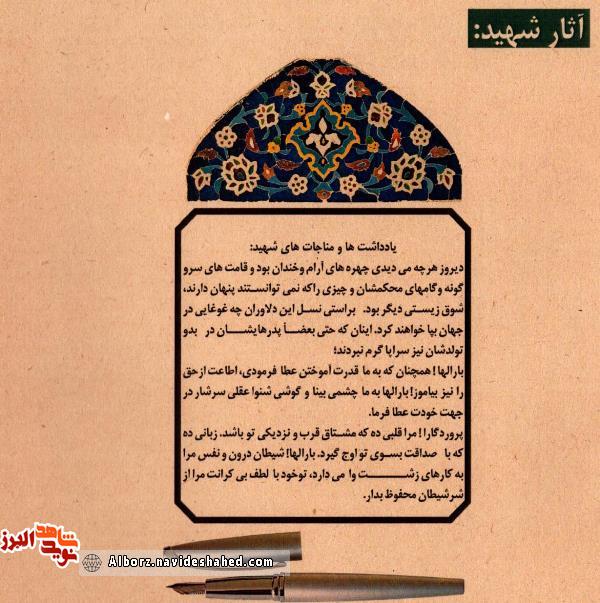 آثار شهید:
یادداشت ها و مناجات های شهید:
دیروز هرچه می دیدی چهره های آرام وخندان بود و قامت های سرو
گونه وگامهای محکمشان و چیزی راکه نمی توانستند پنهان دارند،
شوق زیستی دیگر بود. براستی نسل این دلاوران چه غوغایی در
جهان بپا خواهند کرد. اینان که حتی بعضاً پدرهایشان در بدو
تولدشان نیز سراپا گرم نبردند؛
بارالها! همچنان که به ما قدرت آموختن عطا فرمودی، اطاعت از حق
را نیز بیاموز! بارالها به ما چشمی بینا و گوشی شنوا عقلی سرشار در
جهت خودت عطا فرما.
پروردگارا! مرا قلبی ده که مشتاق قرب و نزدیکی تو باشد. زبانی ده
که با صداقت بسوی تو اوج گیرد. بارالها! شیطان درون و نفس مرا
به کارهای زشت وا می دارد، توخود با لطف بی کرانت مرا از
شرشیطان محفوظ بدار.
نوید شاهد البرز
Alborz.navideshahed.com